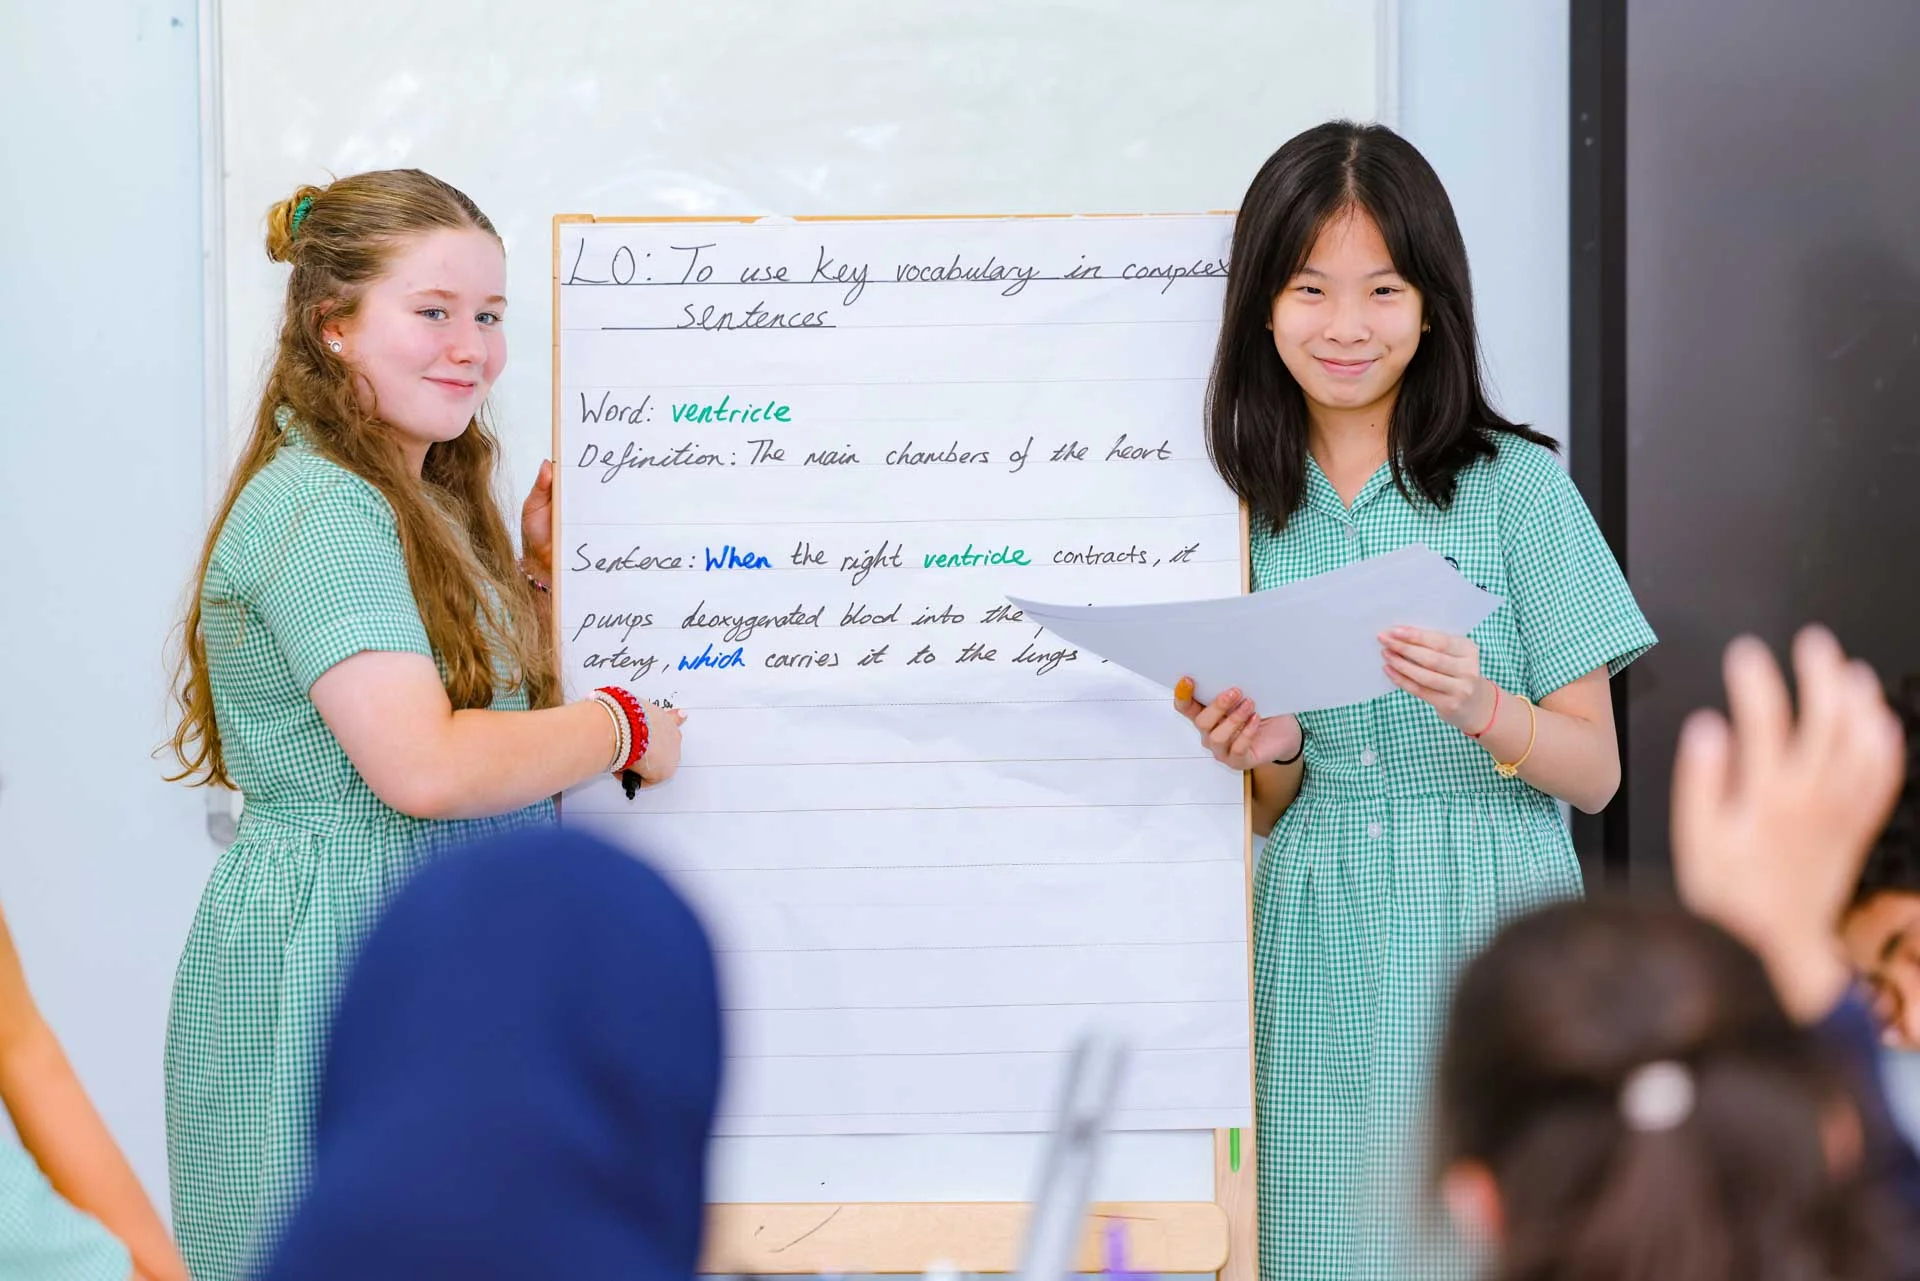 LO: To use key vocabulary in complex
sentences
Word: ventricle
Definition: The main chambers of the heart
Sentence: When the right ventricle contracts, it
pumps deoxygenated blood into the
artery, which carries it to the lungs